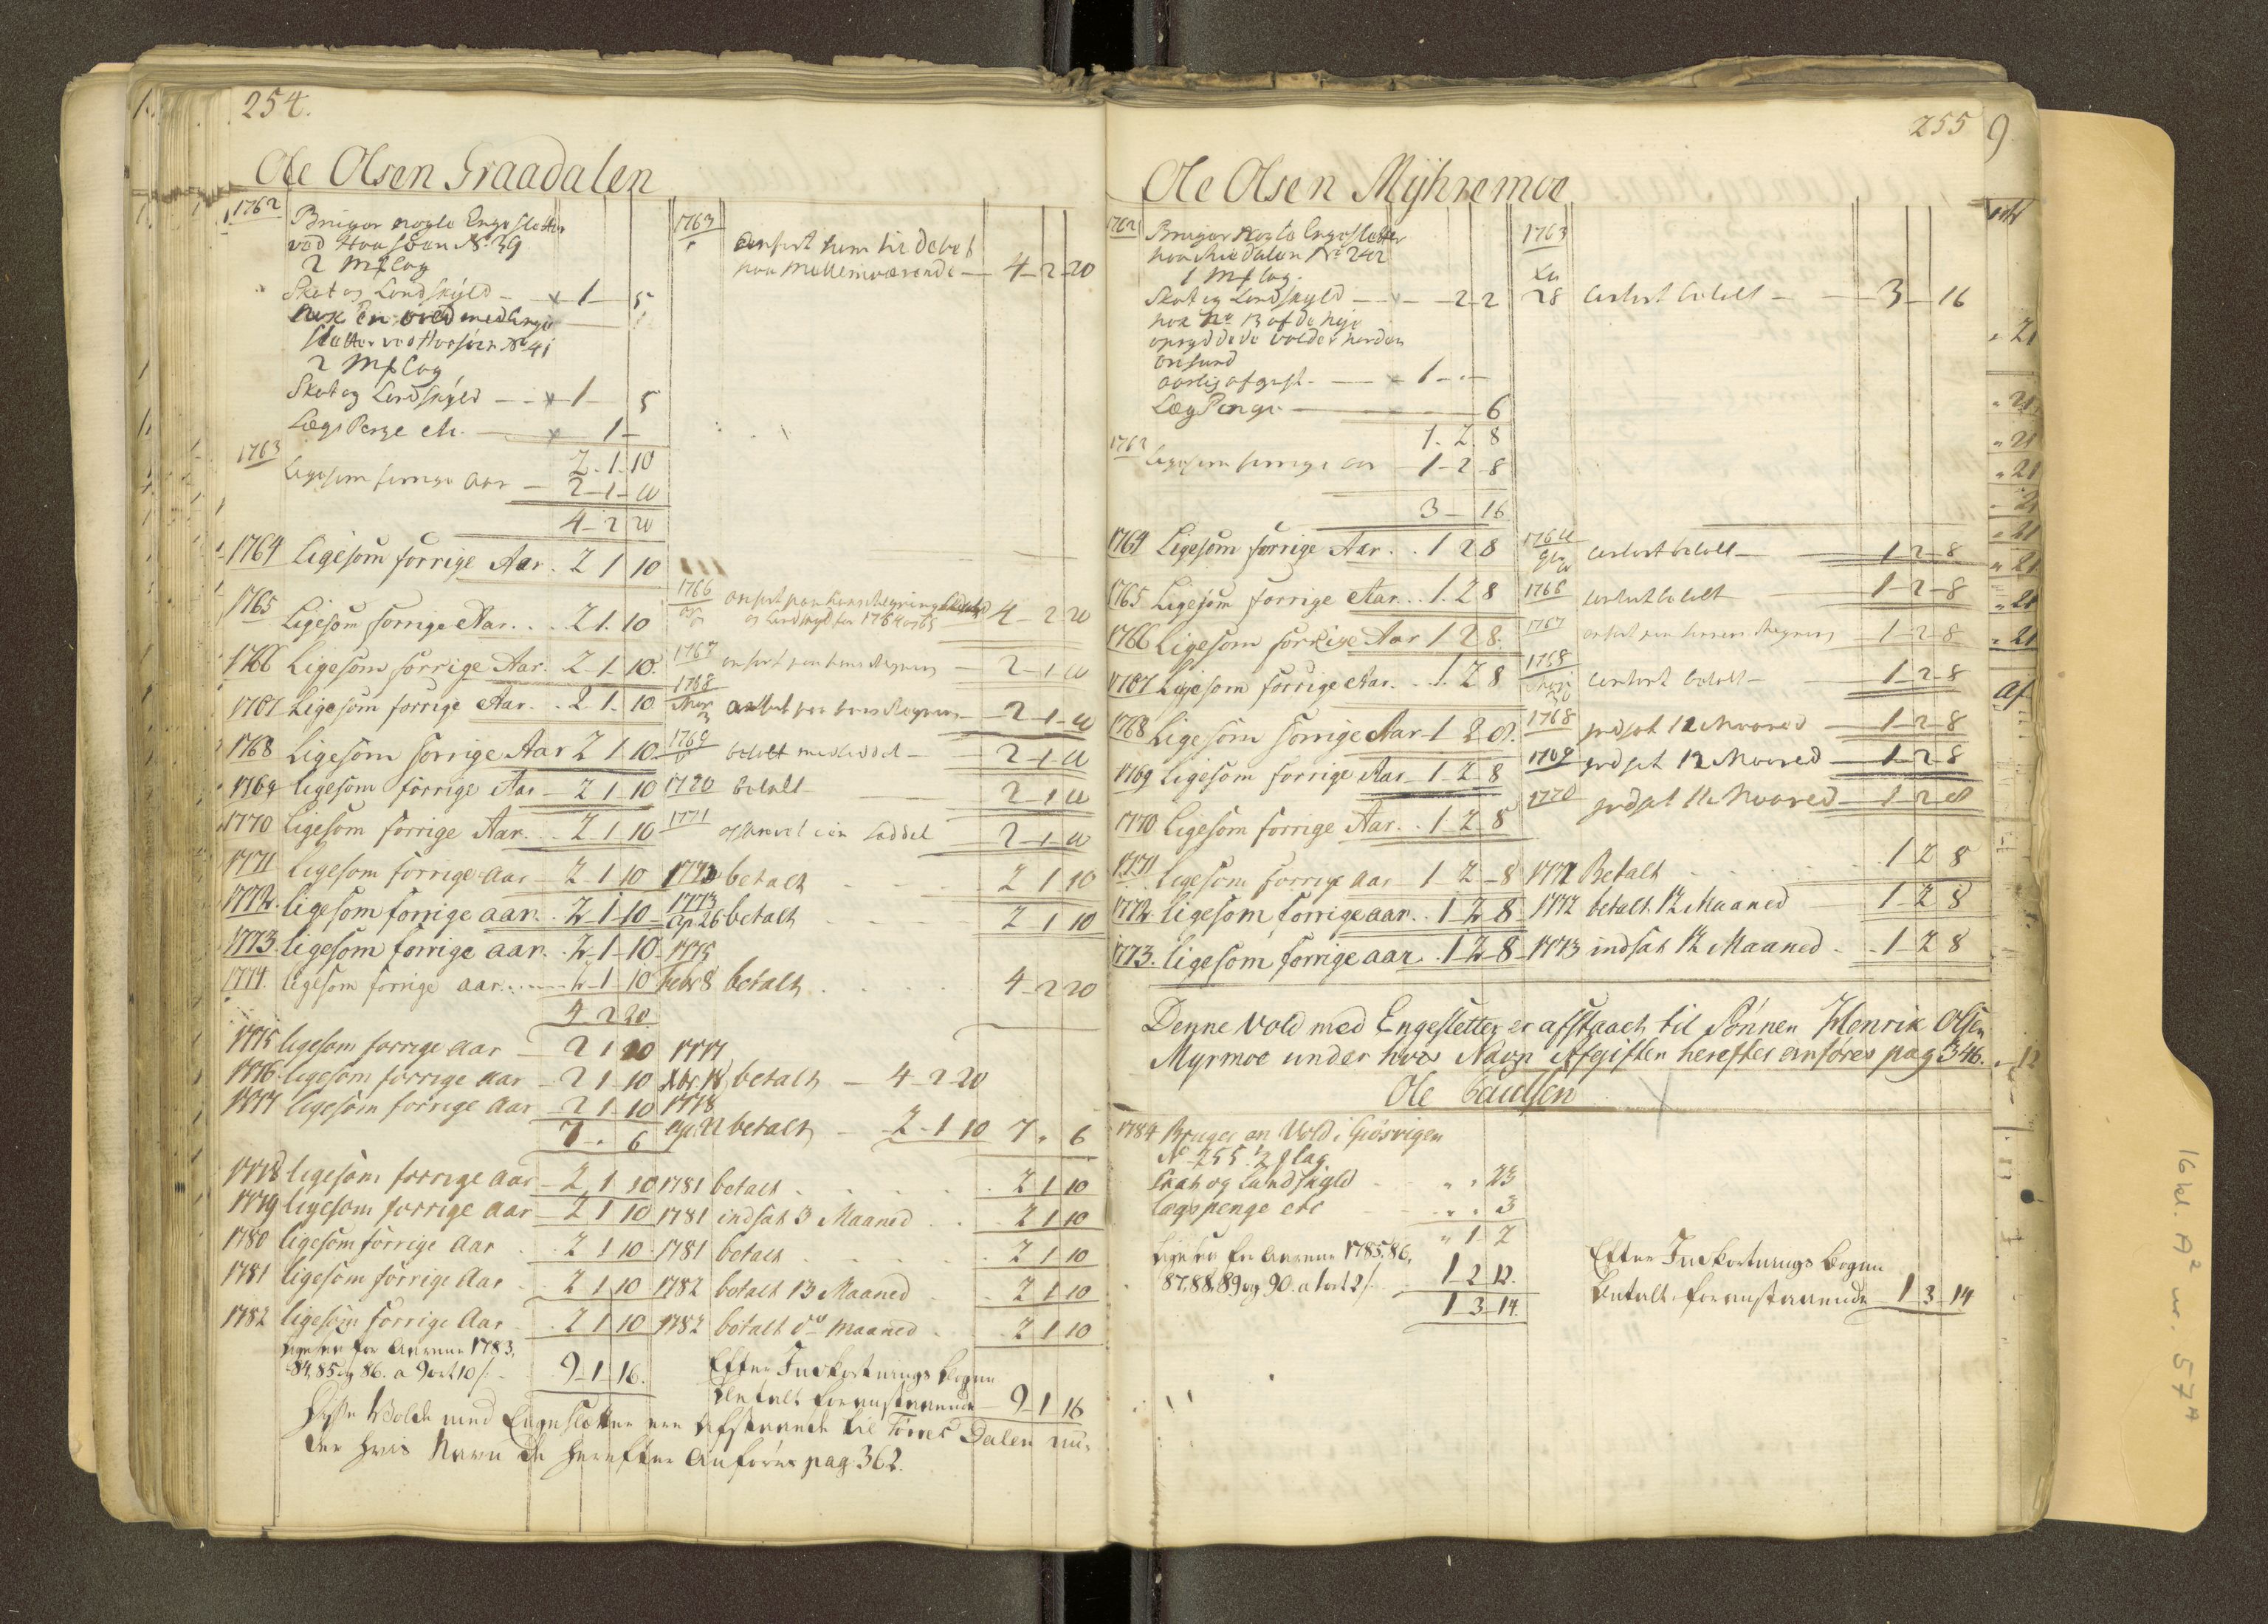 254.
Ole Olsen Graadalen
1762
Bruger nogle Enge Sletter
ved Haasøen No. 39
2 Mf Lag
Skat og Landskyld - 1 - 5
nok En vold med Enge
Sletter ved Haasøen No 41
2 Mf Lag
Skat og Landskyld - 1 - 5
Lægs Penge etc. - 1 -
2 - 1 - 10
1763
Ligesom forrige Aar - 2 - 1 - 10
4 - 2 20
1764 Ligesom forrige Aar . 2 1 10
1765 Ligesom forrige Aar . . 2 1. 10
1766 Ligesom forrige Aar. 2 - 1 - 10.
1767 Ligesom forrige Aar. . 2 - 1. 10
1768 Ligesom forrige Aar 2 1 - 10
1769 ligesom forrige Aar - 2 1 - 10
1770 Ligesom forrige Aar. . 2 1 - 10
1771 ligesom forrige aar - 2 1 10
1772. ligesom forrige aar . 2 - 1 - 10
1773. ligesom forrige aar . 2 - 1 - 10
1774. ligesom forrige aar . . . 2 - 1 10
4 - 2 20.
1775 ligesom forrige aar - 2 1 10
1776. ligesom forrige aar - 2 1 - 10
1777 ligesom forrige aar - 2 1 - 10
7 - . 6
1778 ligesom forrige aar - 2 1 10
1779 ligesom forrige aar - 2 1 10
1780 ligesom forrige Aar . 2 1 10
1781 ligesom forrige Aar . 2 1 10
1782 ligesom forrige Aar . 2 1 10
ligesaa for Aarene 1783,
84, 85 og 86. a 9 ort 10 /. 9 - 1 - 16.
1763
anført ham til debet
paa Mellemværende - 4 - 2 - 20
1766
anført paa hans Regning
og Landskyld for 1764 og 65 4 - 2 20
1767 anført paa hans Regning - 2 - 1 - 10
1768
anført paa hans Regning - 2 - 1 - 10
1769
betalt med seddel - 2 - 1 - 10
1770 betalt 2 - 1 10
1771 2 - 1 - 10
1772 betalt . . . 2 1 10
1773
Ap 26 betalt - - 2 1 10
1775
Febr 8 betalt . . . . 4 - 2 20
1777
Xbr betalt - 4 - 2 20
1778
Ap 11 betalt - 2 - 1 10 7 " 6
1781 betalt . . . . 2 1 10
1781 indsat 3 Maaned . . 2 1 10
1781 betalt . . . . 2 1 10
1782 betalt 13 Maaned . . 2 1 10
1782 betalt do Maaned . . 2 1 10
Efter Indkortnings bogen
betalt foranstaaende - 9 - 1 - 16
Disse Volde med Engesletter ere Afstaaende til Tørres Dalen un-
der hvis Navn de herefter Anføres pag. 362.
255
Ole Olsen Mÿhremoe
1762
Bruger Nogle Engesletter
paa Miedalen No 242
1 Mf Lag.
Skat og Landskyld - - 2 - 2
nok No 13 af de Nye
opryddede volder norden
aarlig afgift. - 1 - . -
Læg Penge - 6
1 - 2 8
1763
Ligesom forrige Aar - 1 - 2 - 8
3 - 16
1764 Ligesom forrige Aar. . 1 2 8
1765 Ligesom forrige Aar . . 1. 2 8
1766 Ligesom forrige Aar 1 2 8.
1767 Ligesom forrige Aar. . 1. 2 8
1768 Ligesom forrige Aar - 1 2 8.
1769 Ligesom forrige Aar - 1 - 2 - 8
1770 Ligesom forrige Aar . . 1 - 2 8
1771 ligesom forrige aar 1 - 2 - 8
1772. ligesom forrige aar . . 1 2 8
1773. ligesom forrige aar . 1 - 2 - 8
1763
28 Cortert betalt - 3 - 16
1764
Cortert betalt - 1 - 2 - 8
1766 Cortert betalt 1 - 2 - 8
1767 anført paa Regning - 1 - 2 - 8
1768
Cortert betalt - 1 - 2 - 8
1768 indsat 12 Maaned - 1 - 2 - 8
1769 indsat 12 Maaned - 1 - 2 - 8
1770 indsat 11 Maaned - 1 - 2 - 8
1771 Betalt . . . 1 2 8
1772 betalt 12 Maaned 1 2 8
1773 indsat 12 Maaned - 1 - 2 8
Denne Vold med Engesletter er afstaaet til Sønnen Henrik Olsen
Myrmoe under hvis Navn Afgiften herefter anføres pag 346.
Ole Paulsen
1784 Bruger en Vold i Giøsvigen
No 255. 1/2 f lag
Skat og Landskyld - " " 23
Lægspenge etc - " " 3
" 1 2
ligesaa for Aarene 1785, 86,
87, 88, 89 og 90. a 1 ort 2 /. 1 - 2 12.
1 3 - 14.
Efter Indkortnings bogen
betalt foranstaaende 1 - 3 - 14
16 kl. A2 nr. 57A